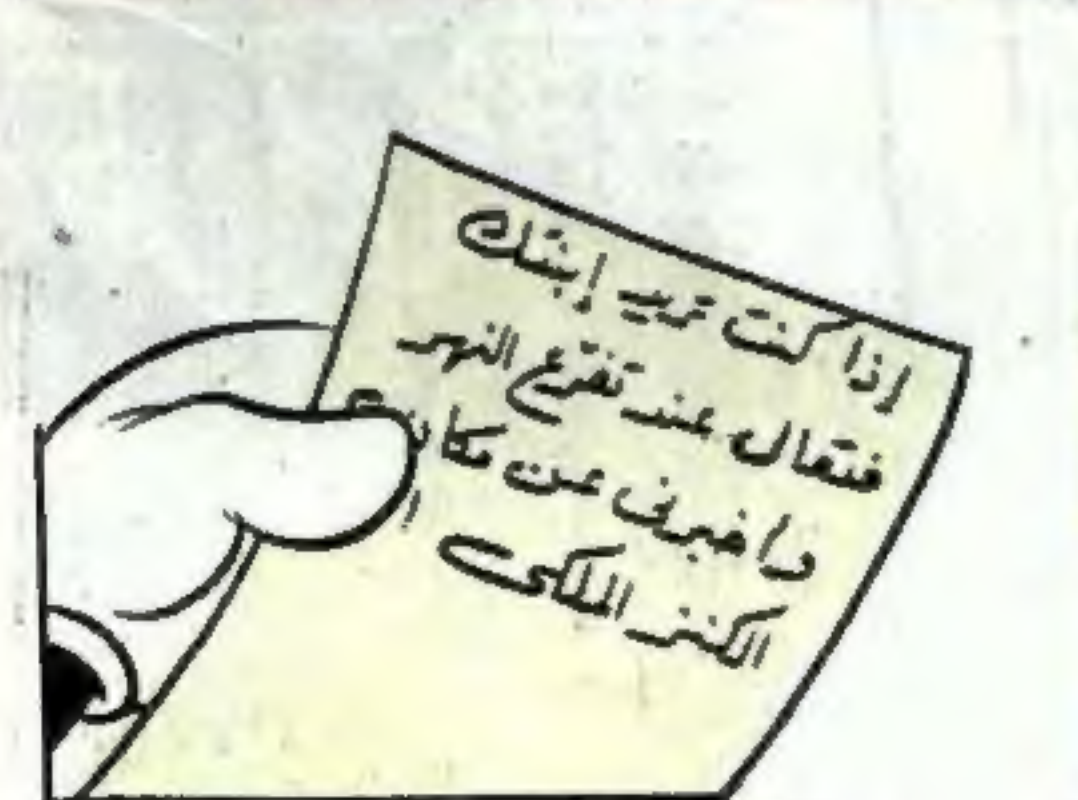 إذا كنت تريد إبنتك
فتعال عند تفرّع النهر
واخبرنى عن مكان
الكنز الملكى